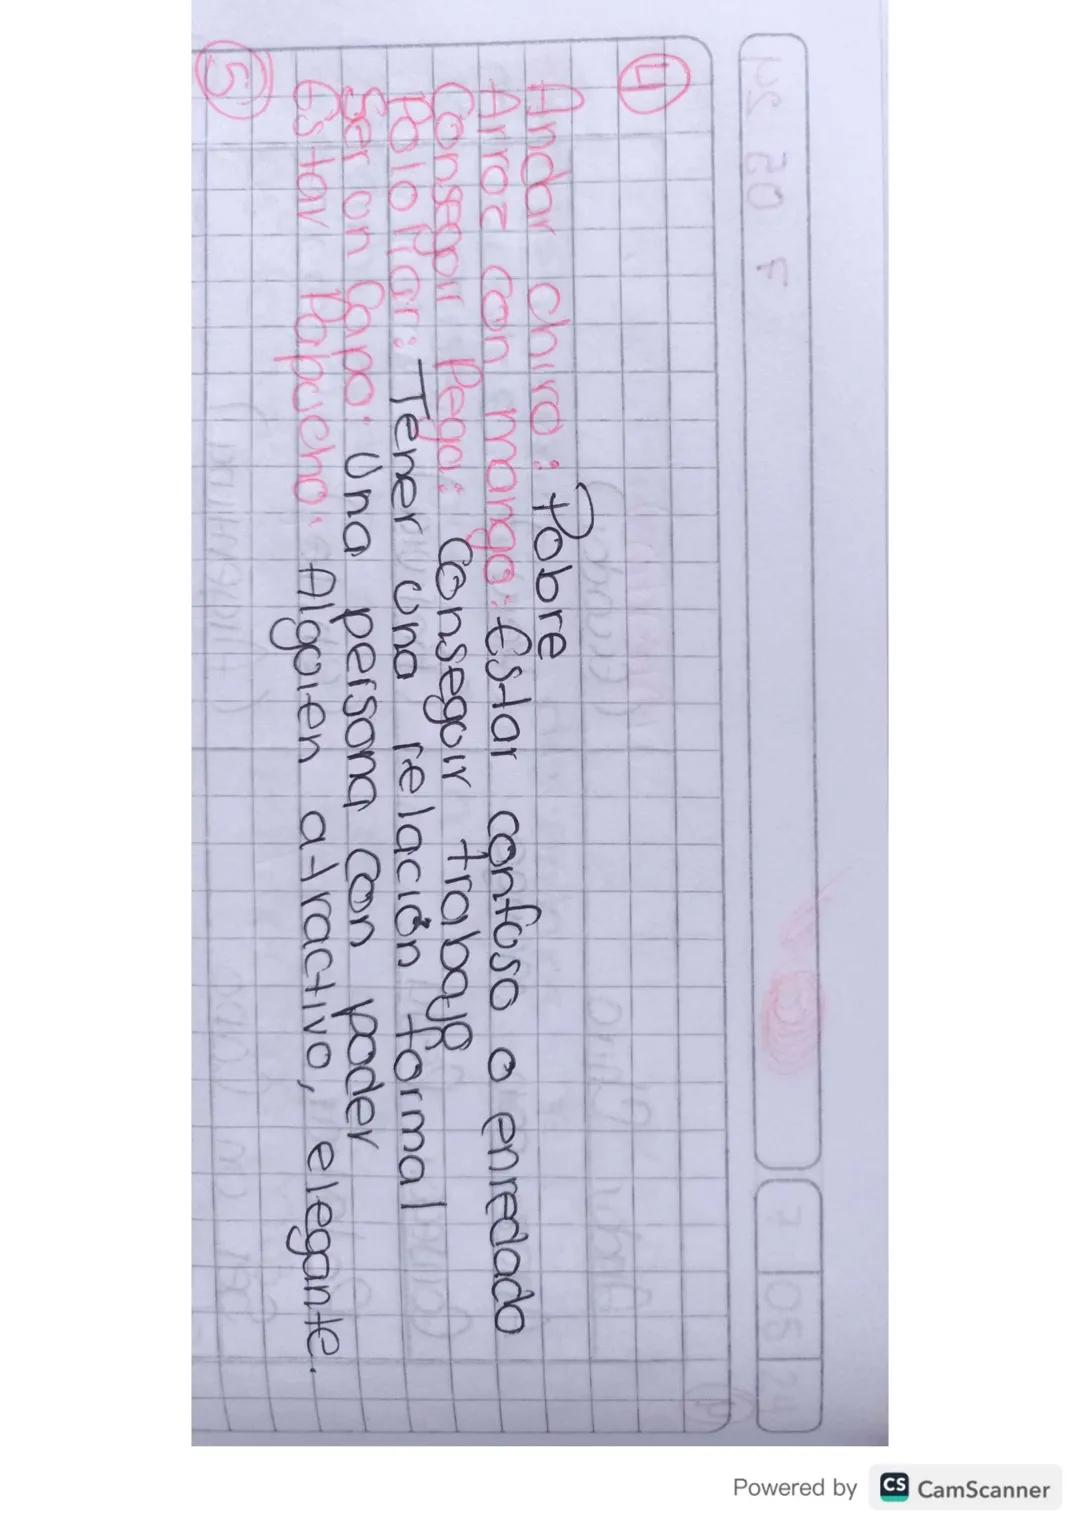 4
Andar chiro: Pobre
Arroz con mango: Estar confuso o enredado
Conseguir Pega: Conseguir trabajo
Pololear: Tener una relación formal
Ser un Capo: Una persona con poder
Estar Papucho: Alguien atractivo, elegante.
5
Powered by CS CamScanner